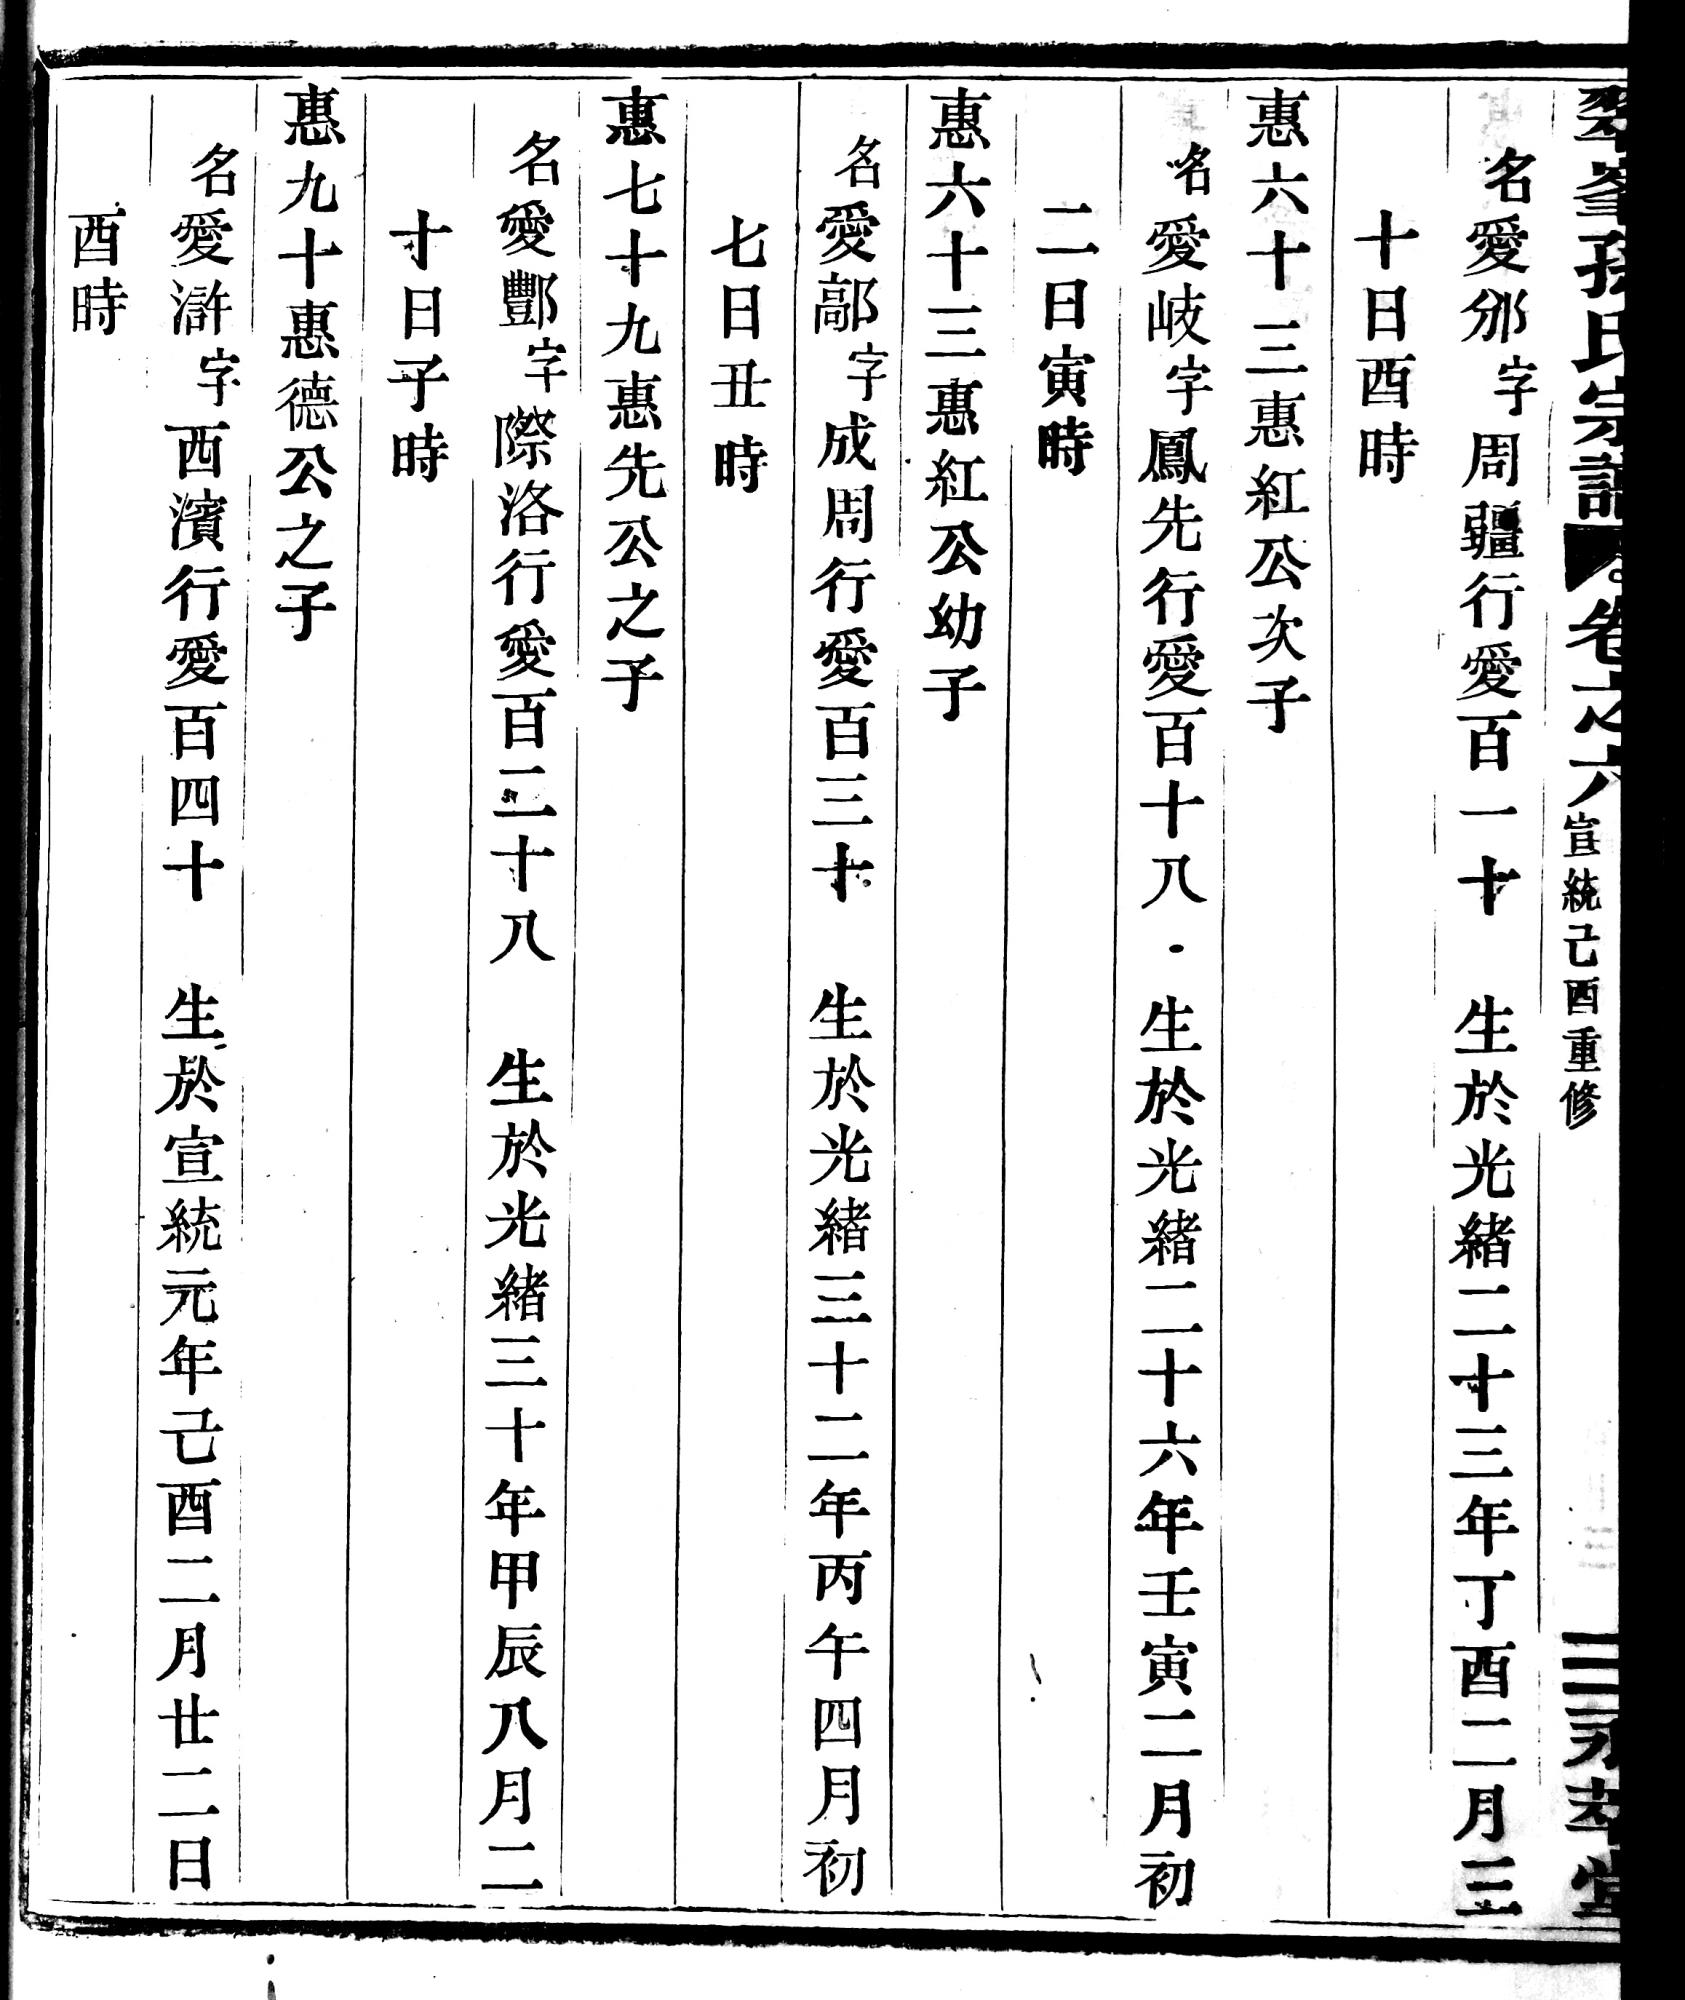 翠峯孫氏宗譜 卷之六 宣統己酉重修 萃堂
名愛邠字周疆行愛百一十 生於光緒二十三年丁酉二月三
十日酉時
惠六十三惠紅公次子
名愛岐字鳳先行愛百十八 生於光緒二十六年壬寅二月初
二日寅時
惠六十三惠紅公幼子
名愛鄗字成周行愛百三十 生於光緒三十二年丙午四月初
七日丑時
惠七十九惠先公之子
名愛酆字際洛行愛百二十八 生於光緒三十年甲辰八月二
十日子時
惠九十惠德公之子
名愛滸字西濱行愛百四十 生於宣統元年己酉二月廿二日
酉時